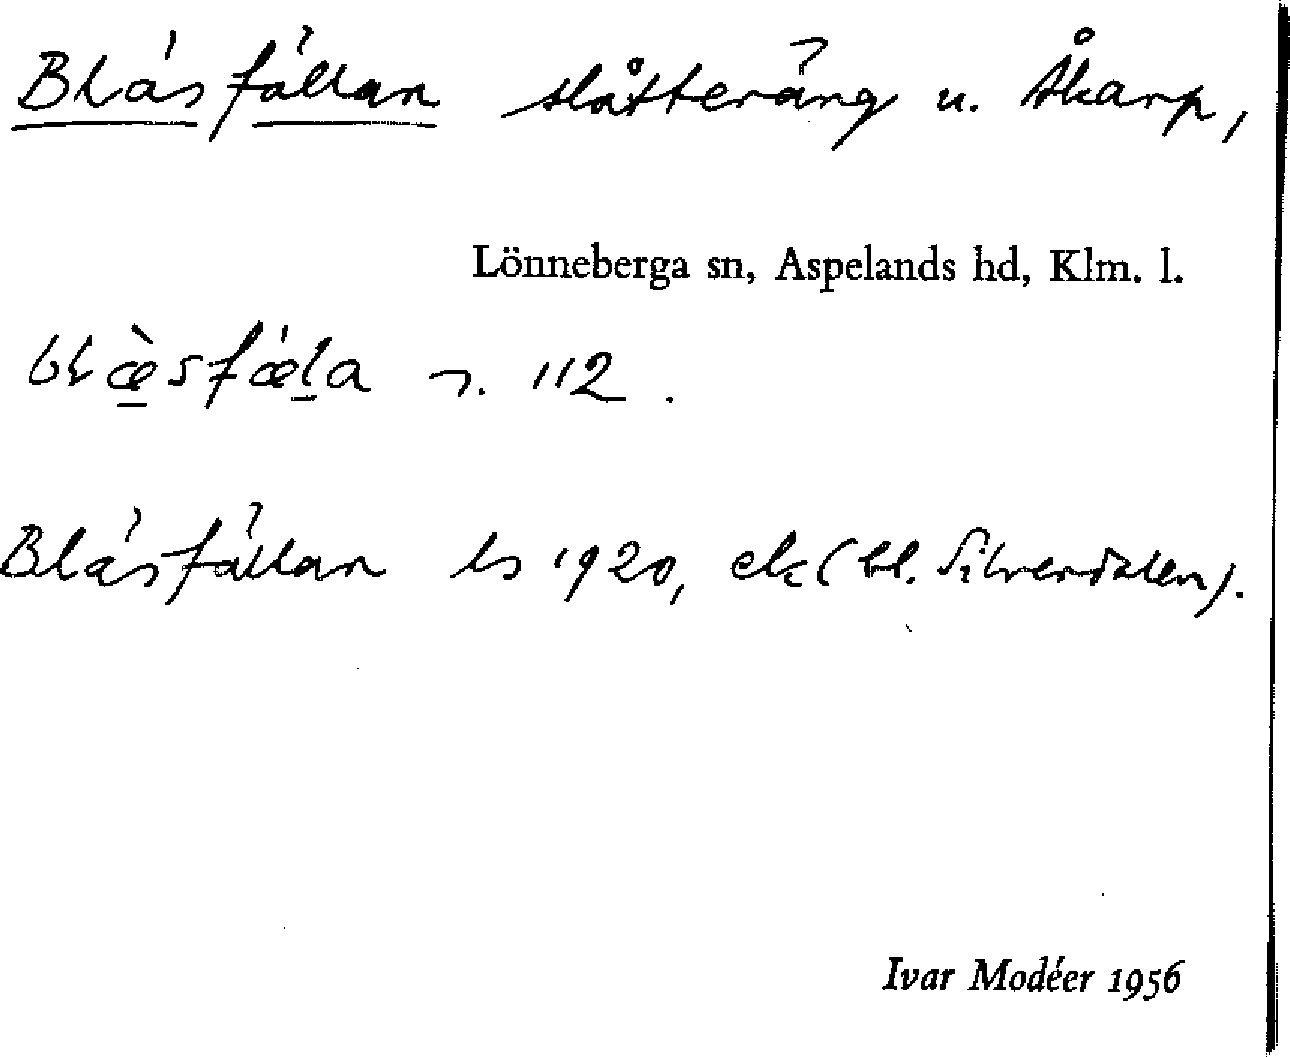 Bläsfällan slåtteräng u. Åkarp,
Lönneberga sn, Aspelands hd, Klm. l.
blæ̀sfǽla 112.
Bläsfällan ls 1920, ek (bl. Silverdalen).
Ivar Modéer 1956